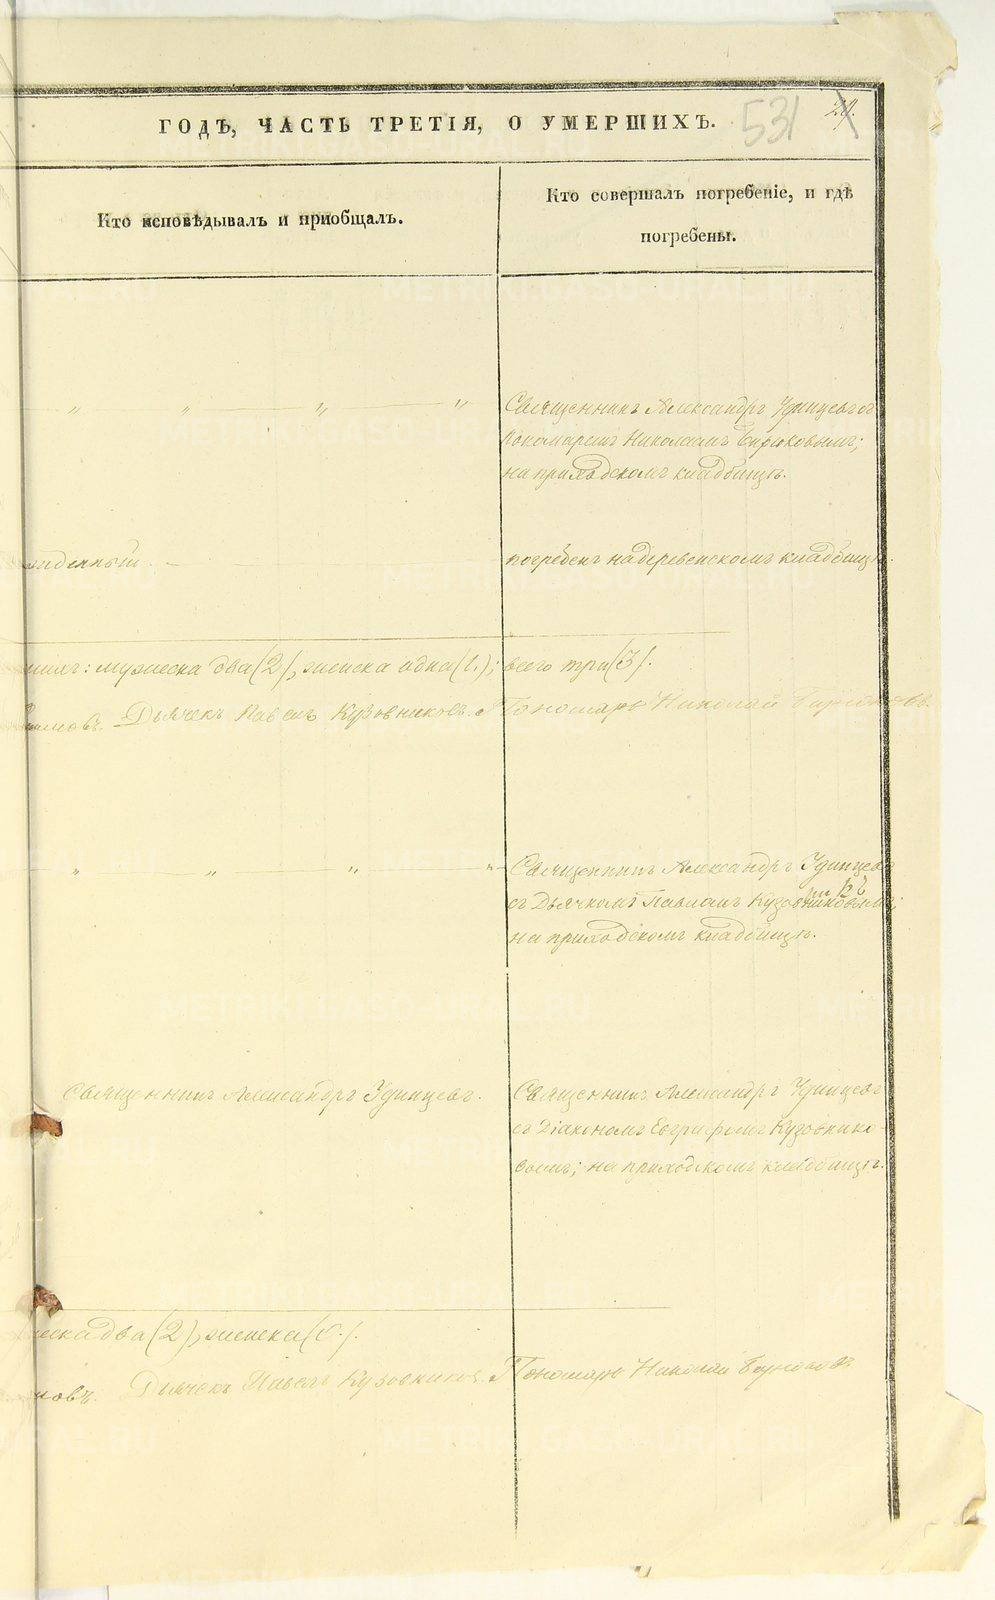 ГОДЪ, ЧАСТЬ ТРЕТІЯ, О УМЕРШИХЪ.
531
Кто исповѣдывалъ и пріобщалъ.
Кто совершалъ погребеніе, и гдѣ
погребены.
" " " "
Священникъ Александръ Удинцевъ съ
Пономаремъ Николаемъ Бирюковымъ;
на приходскомъ кладбищѣ.
погребенъ на деревенскомъ кладбищѣ.
мужеска два (2), женска одна (1.); всего три (3).
Дьячекъ Павелъ Кузовниковъ. Пономарь Николай Бирюковъ.
" " " "
Священникъ Александръ Удинцевъ
съ Дьячкомъ Павломъ Кузовниковымъ;
на приходскомъ кладбищѣ.
Священникъ Александръ Удинцевъ.
Священникъ Александръ Удинцевъ
съ Діакономъ Евграфомъ Кузовнико-
вымъ; на приходскомъ кладбищѣ.
два (2), женска (0.).
Дьячекъ Павелъ Кузовниковъ. Пономарь Николай Бирюковъ
METRIKI.GASO-URAL.RU